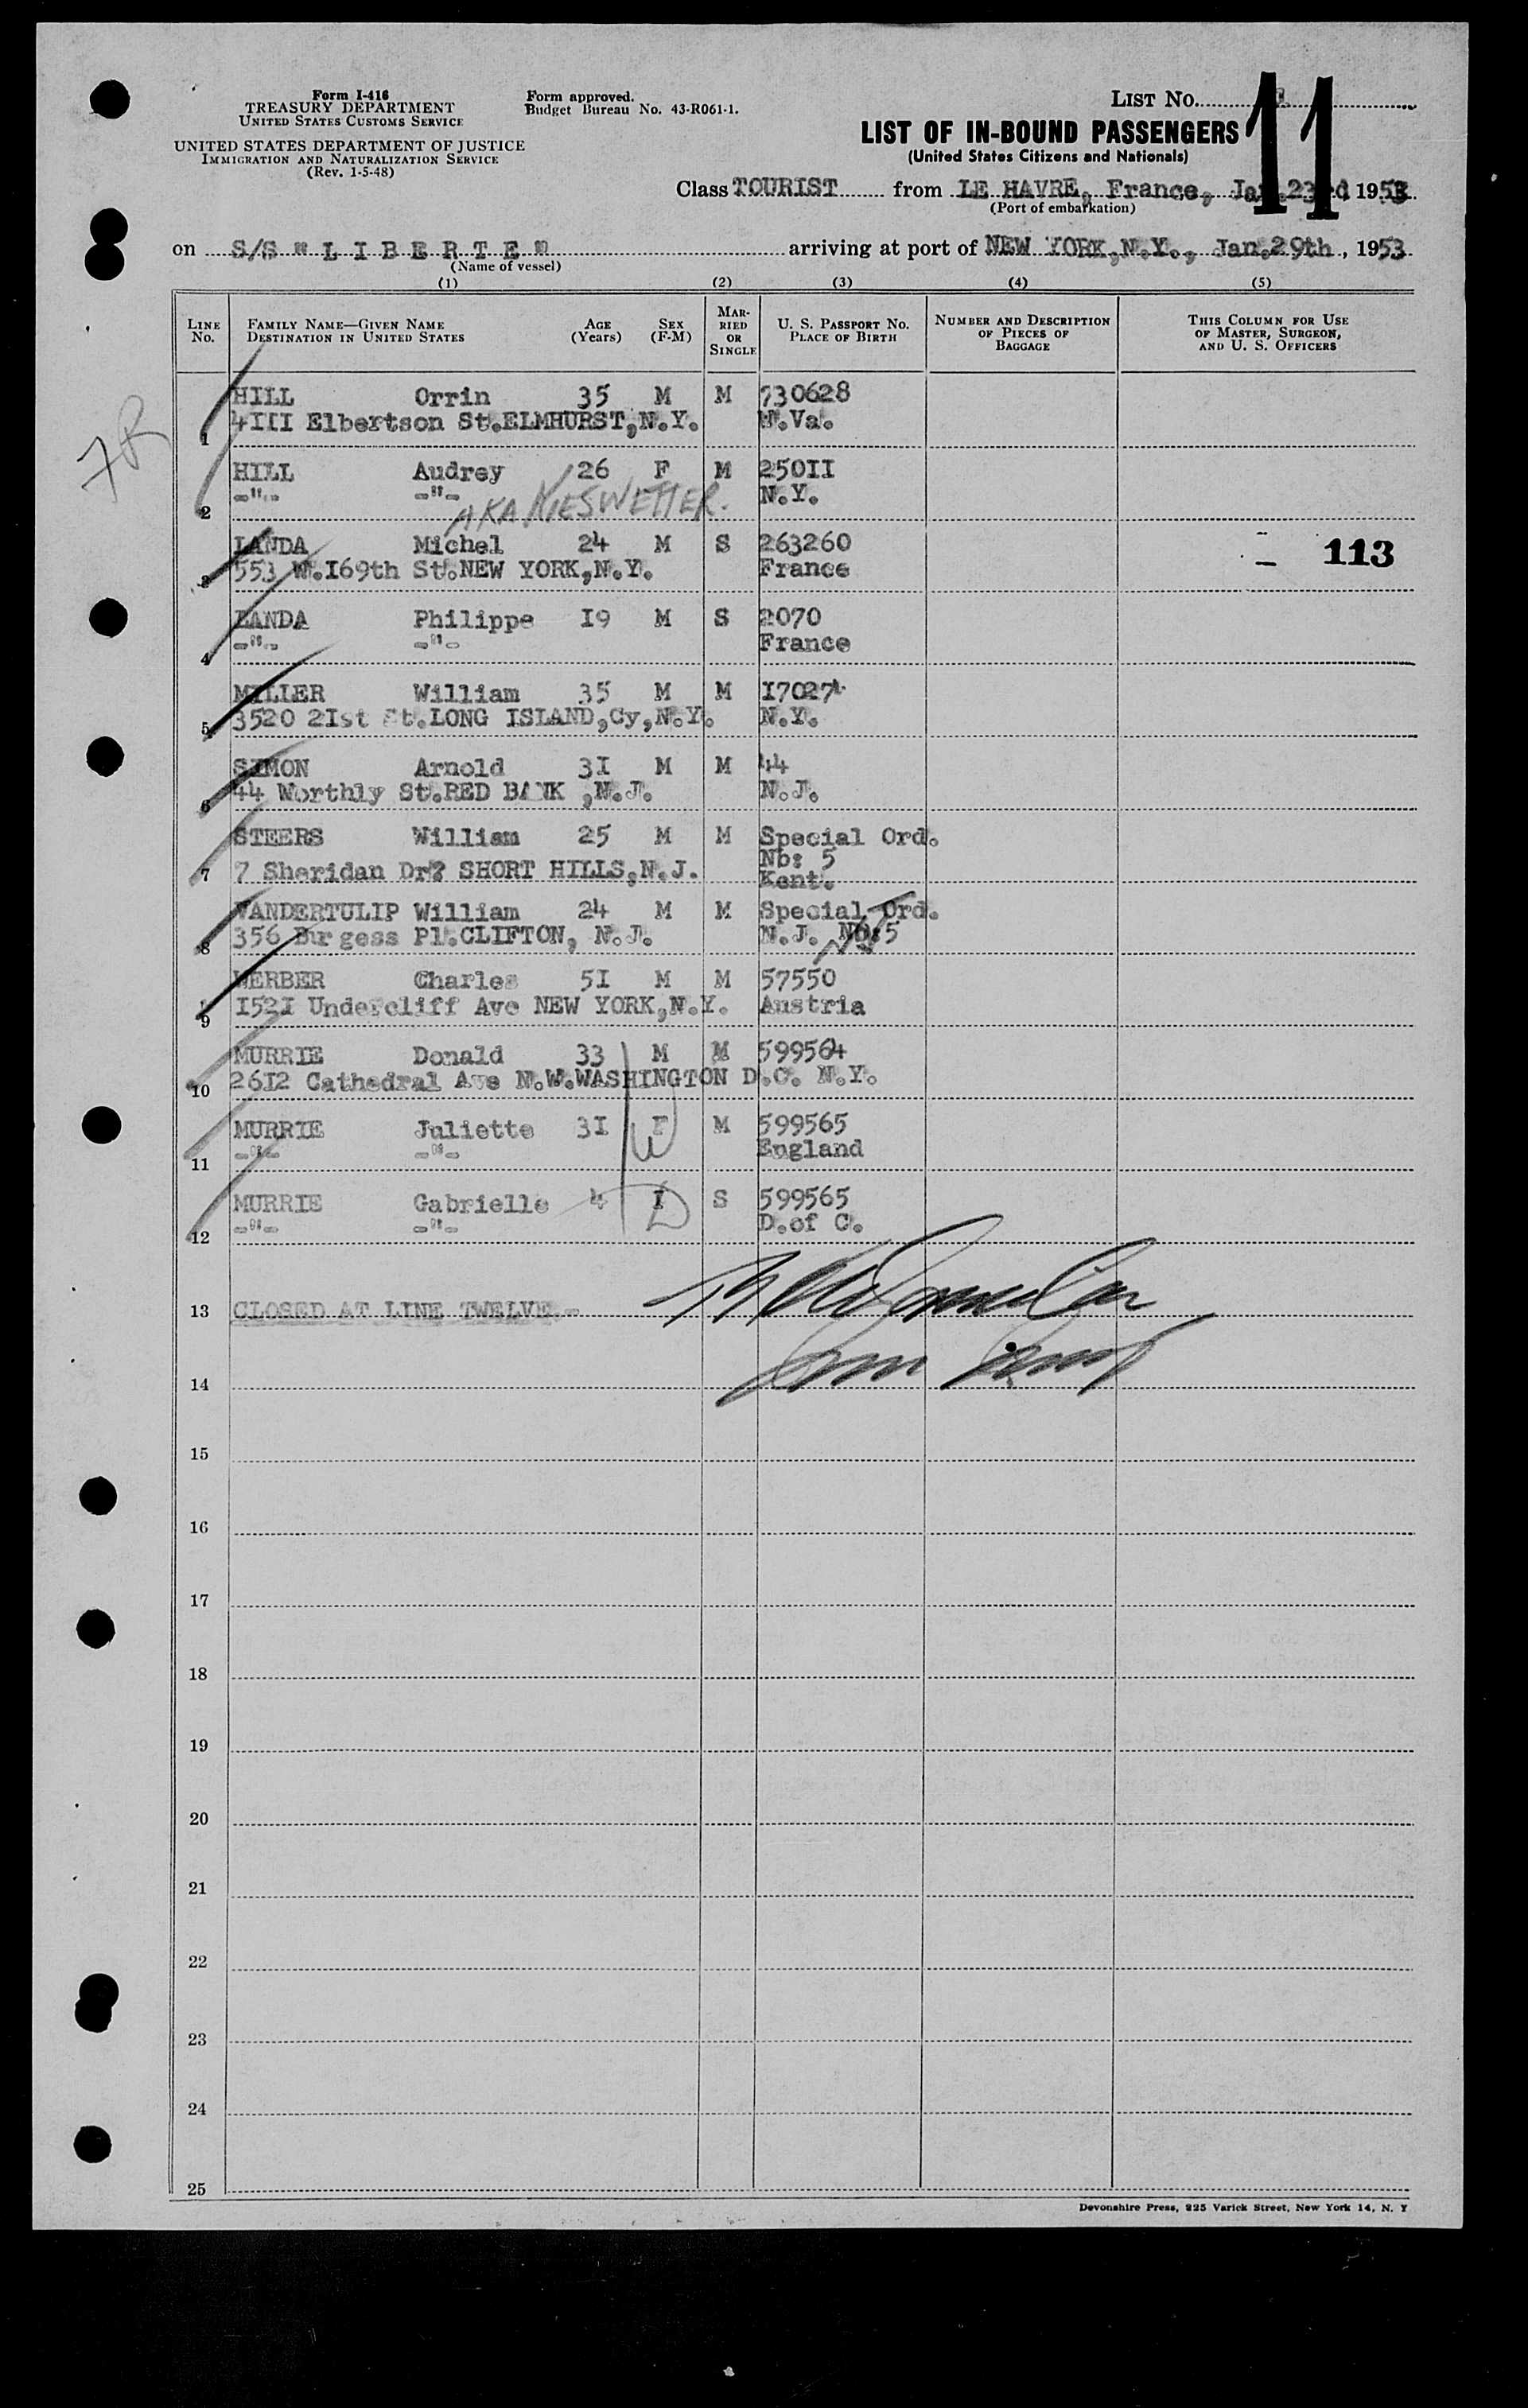 Form I-416
TREASURY DEPARTMENT
UNITED STATES CUSTOMS SERVICE
UNITED STATES DEPARTMENT OF JUSTICE
IMMIGRATION AND NATURALIZATION SERVICE
(Rev. 1-5-48)
Form approved.
Budget Bureau No. 43-R061-1.
LIST No. 11
LIST OF IN-BOUND PASSENGERS
(United States Citizens and Nationals)
Class TOURIST from LE HAVRE, France, Jan.23rd, 1953
(Port of embarkation)
on S/S "L I B E R T E" arriving at port of NEW YORK,N.Y., Jan.29th, 1953
(Name of vessel)
(1) (2) (3) (4) (5)
LINE No. FAMILY NAME—GIVEN NAME DESTINATION IN UNITED STATES AGE (Years) SEX (F-M) MARRIED OR SINGLE U. S. PASSPORT NO. PLACE OF BIRTH NUMBER AND DESCRIPTION OF PIECES OF BAGGAGE THIS COLUMN FOR USE OF MASTER, SURGEON, AND U. S. OFFICERS
7R
HILL Orrin 35 M M 730628
1 4III Elbertson St.ELMHURST,N.Y. W.Va.
HILL Audrey 26 F M 250II
2 -"- -"- N.Y.
AKA KIESWETTER.
LANDA Michel 24 M S 263260
3 553 W.I69th St.NEW YORK,N.Y. France
— 113
LANDA Philippe I9 M S 2070
4 -"- -"- France
MILLER William 35 M M I70274
5 3520 2Ist St.LONG ISLAND,Cy,N.Y. N.Y.
SIMON Arnold 3I M M 44
6 44 Worthly St.RED BANK ,N.J. N.J.
STEERS William 25 M M Special Ord.
Nb: 5
7 7 Sheridan Dr? SHORT HILLS,N.J. Kent.
VANDERTULIP William 24 M M Special Ord.
8 356 Burgess Pl.CLIFTON, N.J. N.J. Nb:5
WERBER Charles 5I M M 57550
9 I52I Undercliff Ave NEW YORK,N.Y. Austria
MURRIE Donald 33 M M 599564
10 26I2 Cathedral Ave N.W.WASHINGTON D.C. N.Y.
MURRIE Juliette 3I F M 599565
11 -"- -"- England
W
MURRIE Gabrielle 4 S 599565
12 -"- -"- D.of C.
D
13 CLOSED AT LINE TWELVE.-
14
15
16
17
18
19
20
21
22
23
24
25
Devonshire Press, 225 Varick Street, New York 14, N. Y